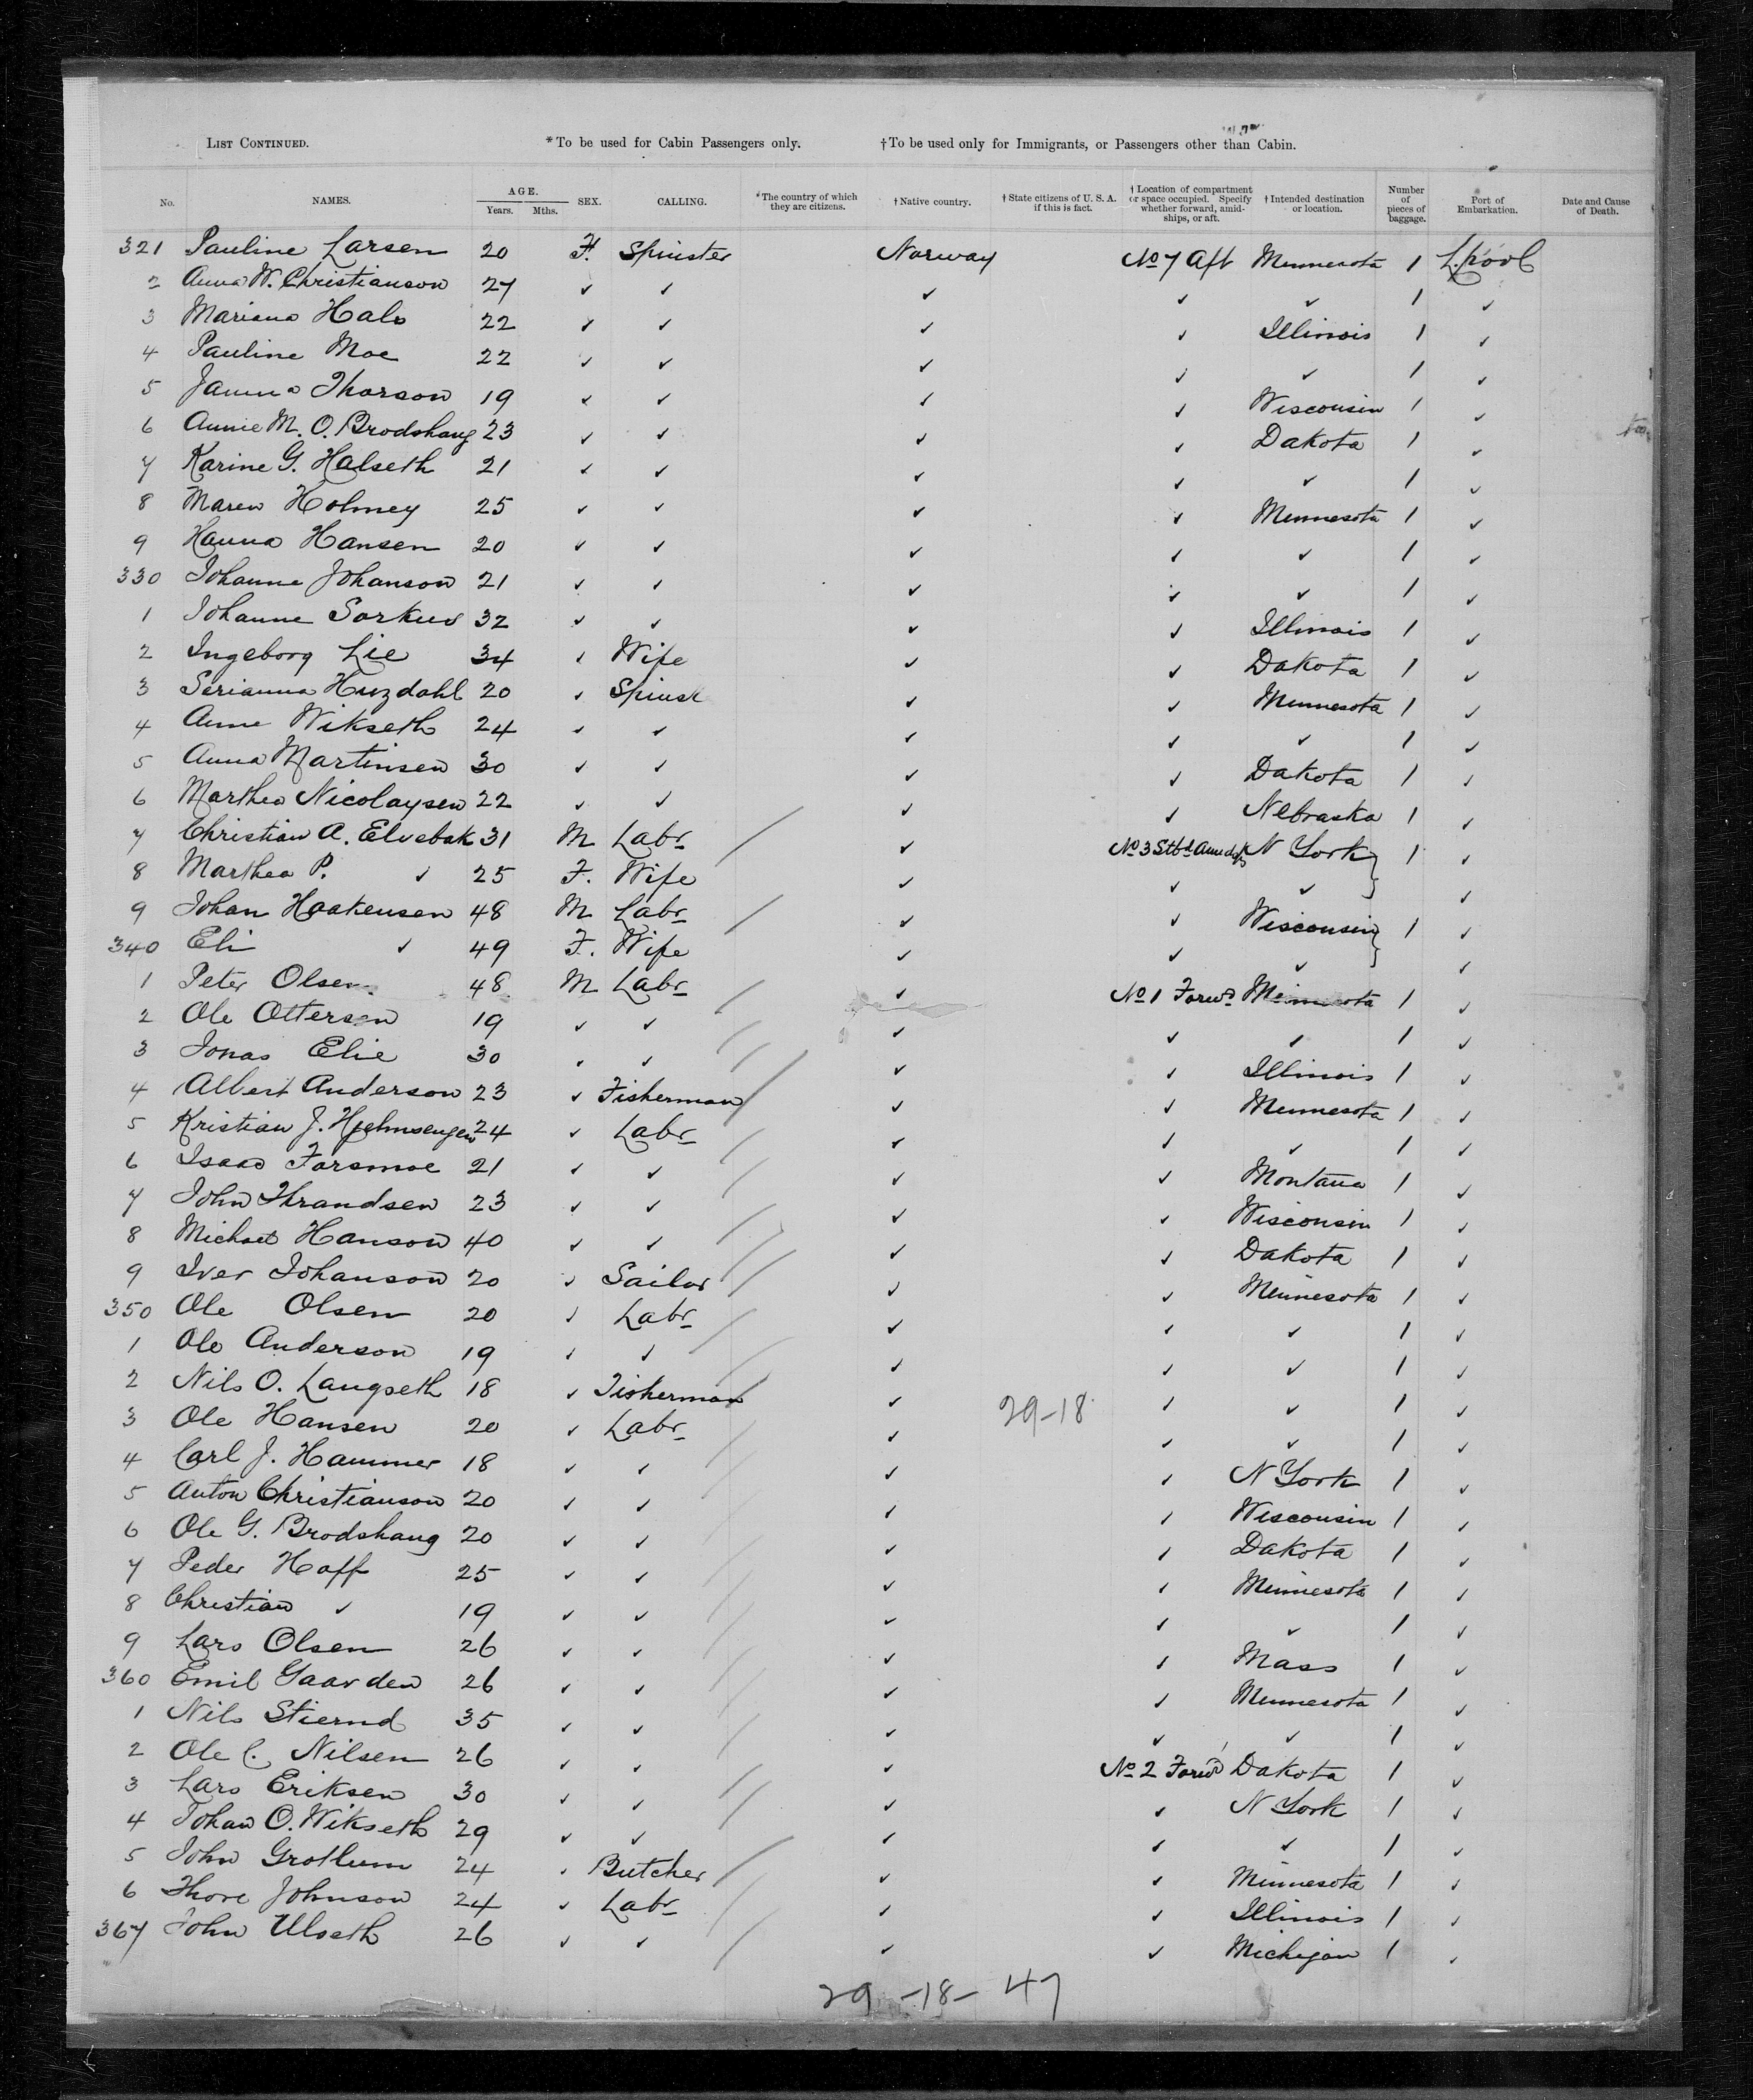 LIST CONTINUED. *To be used for Cabin Passengers only. †To be used only for Immigrants, or Passengers other than Cabin.
No. NAMES. AGE. Years. Mths. SEX. CALLING. *The country of which they are citizens. †Native country. †State citizens of U. S. A. if this is fact. †Location of compartment or space occupied. Specify whether forward, amidships, or aft. †Intended destination or location. Number of pieces of baggage. Port of Embarkation. Date and Cause of Death.
321 Pauline Larsen 20 F. Spinster Norway No 7 Aft Minnesota 1 L.pool
2 Anna W. Christianson 27 ✓ ✓ ✓ ✓ ✓ 1 ✓
3 Mariana Hals 22 ✓ ✓ ✓ ✓ Illinois 1 ✓
4 Pauline Moe 22 ✓ ✓ ✓ ✓ ✓ 1 ✓
5 Thorson 19 ✓ ✓ ✓ ✓ Wisconsin 1 ✓
6 Annie M. O. Brodshaug 23 ✓ ✓ ✓ ✓ Dakota 1 ✓
7 Karine G. Halseth 21 ✓ ✓ ✓ ✓ ✓ 1 ✓
8 Maren Holmey 25 ✓ ✓ ✓ ✓ Minnesota 1 ✓
9 Hanna Hansen 20 ✓ ✓ ✓ ✓ ✓ 1 ✓
330 Johanne Johanson 21 ✓ ✓ ✓ ✓ ✓ 1 ✓
1 Johanne 32 ✓ ✓ ✓ ✓ Illinois 1 ✓
2 Ingeborg Lie 34 ✓ Wife ✓ ✓ Dakota 1 ✓
3 Serianna 20 ✓ Spinst ✓ ✓ Minnesota 1 ✓
4 Anne Wikseth 24 ✓ ✓ ✓ ✓ ✓ 1 ✓
5 Anna Martinsen 30 ✓ ✓ ✓ ✓ Dakota 1 ✓
6 Marthea Nicolaysen 22 ✓ ✓ ✓ ✓ Nebraska 1 ✓
7 Christian A. Elvebak 31 M Labr ✓ No 3 Stbd N York 1 ✓
8 Marthea P. ✓ 25 F. Wife ✓ ✓ ✓ ✓
9 Johan Haakensen 48 M Labr ✓ ✓ Wisconsin 1 ✓
340 Eli ✓ 49 F. Wife ✓ ✓ ✓ ✓
1 Peter Olsen 48 M Labr ✓ No 1 Forwd Minnesota 1 ✓
2 Ole Ottersen 19 ✓ ✓ ✓ ✓ ✓ 1 ✓
3 Jonas Elie 30 ✓ ✓ ✓ ✓ Illinois 1 ✓
4 Albert Anderson 23 ✓ Fisherman ✓ ✓ Minnesota 1 ✓
5 Kristian J. 24 ✓ Labr ✓ ✓ ✓ 1 ✓
6 Isaac Forsmoe 21 ✓ ✓ ✓ ✓ Montana 1 ✓
7 John Thrandsen 23 ✓ ✓ ✓ ✓ Wisconsin 1 ✓
8 Michael Hanson 40 ✓ ✓ ✓ ✓ Dakota 1 ✓
9 Iver Johanson 20 ✓ Sailor ✓ ✓ Minnesota 1 ✓
350 Ole Olsen 20 ✓ Labr ✓ ✓ ✓ 1 ✓
1 Ole Anderson 19 ✓ ✓ ✓ ✓ ✓ 1 ✓
2 Nils O. Langseth 18 ✓ Fisherman ✓ 29-18 ✓ ✓ 1 ✓
3 Ole Hansen 20 ✓ Labr ✓ ✓ ✓ 1 ✓
4 Carl J. Hammer 18 ✓ ✓ ✓ ✓ N York 1 ✓
5 Anton Christianson 20 ✓ ✓ ✓ ✓ Wisconsin 1 ✓
6 Ole G. Brodshaug 20 ✓ ✓ ✓ ✓ Dakota 1 ✓
7 Peder Hoff 25 ✓ ✓ ✓ ✓ Minnesota 1 ✓
8 Christian ✓ 19 ✓ ✓ ✓ ✓ ✓ 1 ✓
9 Lars Olsen 26 ✓ ✓ ✓ ✓ Mass 1 ✓
360 Emil Gaarden 26 ✓ ✓ ✓ ✓ Minnesota 1 ✓
1 Nils Stiernd 35 ✓ ✓ ✓ ✓ ✓ 1 ✓
2 Ole C. Nilsen 26 ✓ ✓ ✓ No 2 Forwd Dakota 1 ✓
3 Lars Eriksen 30 ✓ ✓ ✓ ✓ N York 1 ✓
4 Johan O. Wikseth 29 ✓ ✓ ✓ ✓ ✓ 1 ✓
5 John Grotlum 24 ✓ Butcher ✓ ✓ Minnesota 1 ✓
6 Thore Johnson 24 ✓ Labr ✓ ✓ Illinois 1 ✓
367 John Ulseth 26 ✓ ✓ ✓ ✓ Michigan 1 ✓
29-18-47